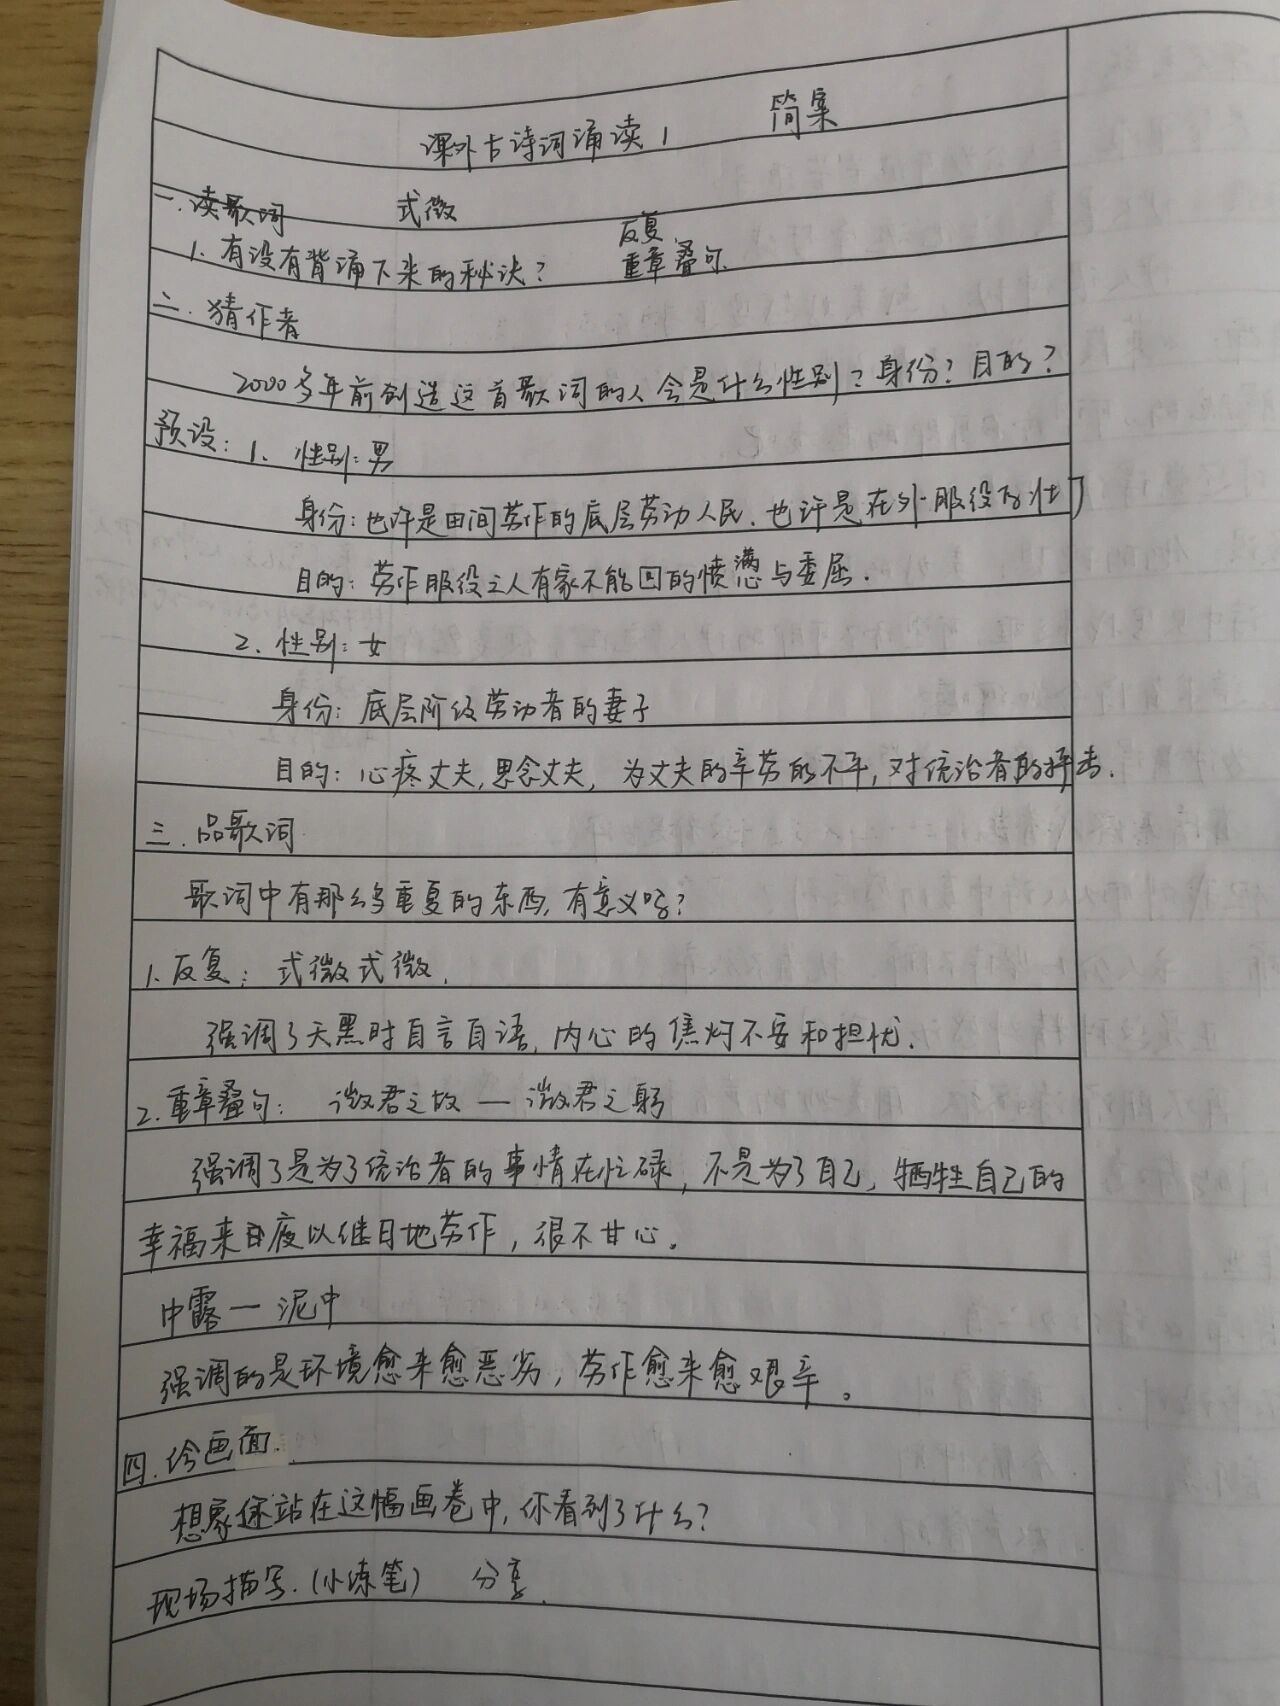 课外古诗词诵读1 简案
一.读歌词 式微
反复、
1.有没有背诵下来的秘诀? 重章叠句.
二.猜作者
2000多年前创造这首歌词的人会是什么性别?身份?目的?
预设:1.性别:男
身份:也许是田间劳作的底层劳动人民.也许是在外服役的壮丁
目的:劳作服役之人有家不能回的愤懑与委屈.
2.性别:女
身份:底层阶级劳动者的妻子
目的:心疼丈夫,思念丈夫,为丈夫的辛劳的不平,对统治者的抨击.
三.品歌词
歌词中有那么多重复的东西,有意义吗?
1.反复:式微式微.
强调了天黑时自言自语,内心的焦灼不安和担忧.
2.重章叠句:微君之故—微君之躬
强调了是为了统治者的事情在忙碌,不是为了自己,牺牲自己的
幸福来夜以继日地劳作,很不甘心。
中露—泥中
强调的是环境愈来愈恶劣;劳作愈来愈艰辛。
四.绘画面.
想象你站在这幅画卷中,你看到了什么?
现场描写.(小练笔) 分享.